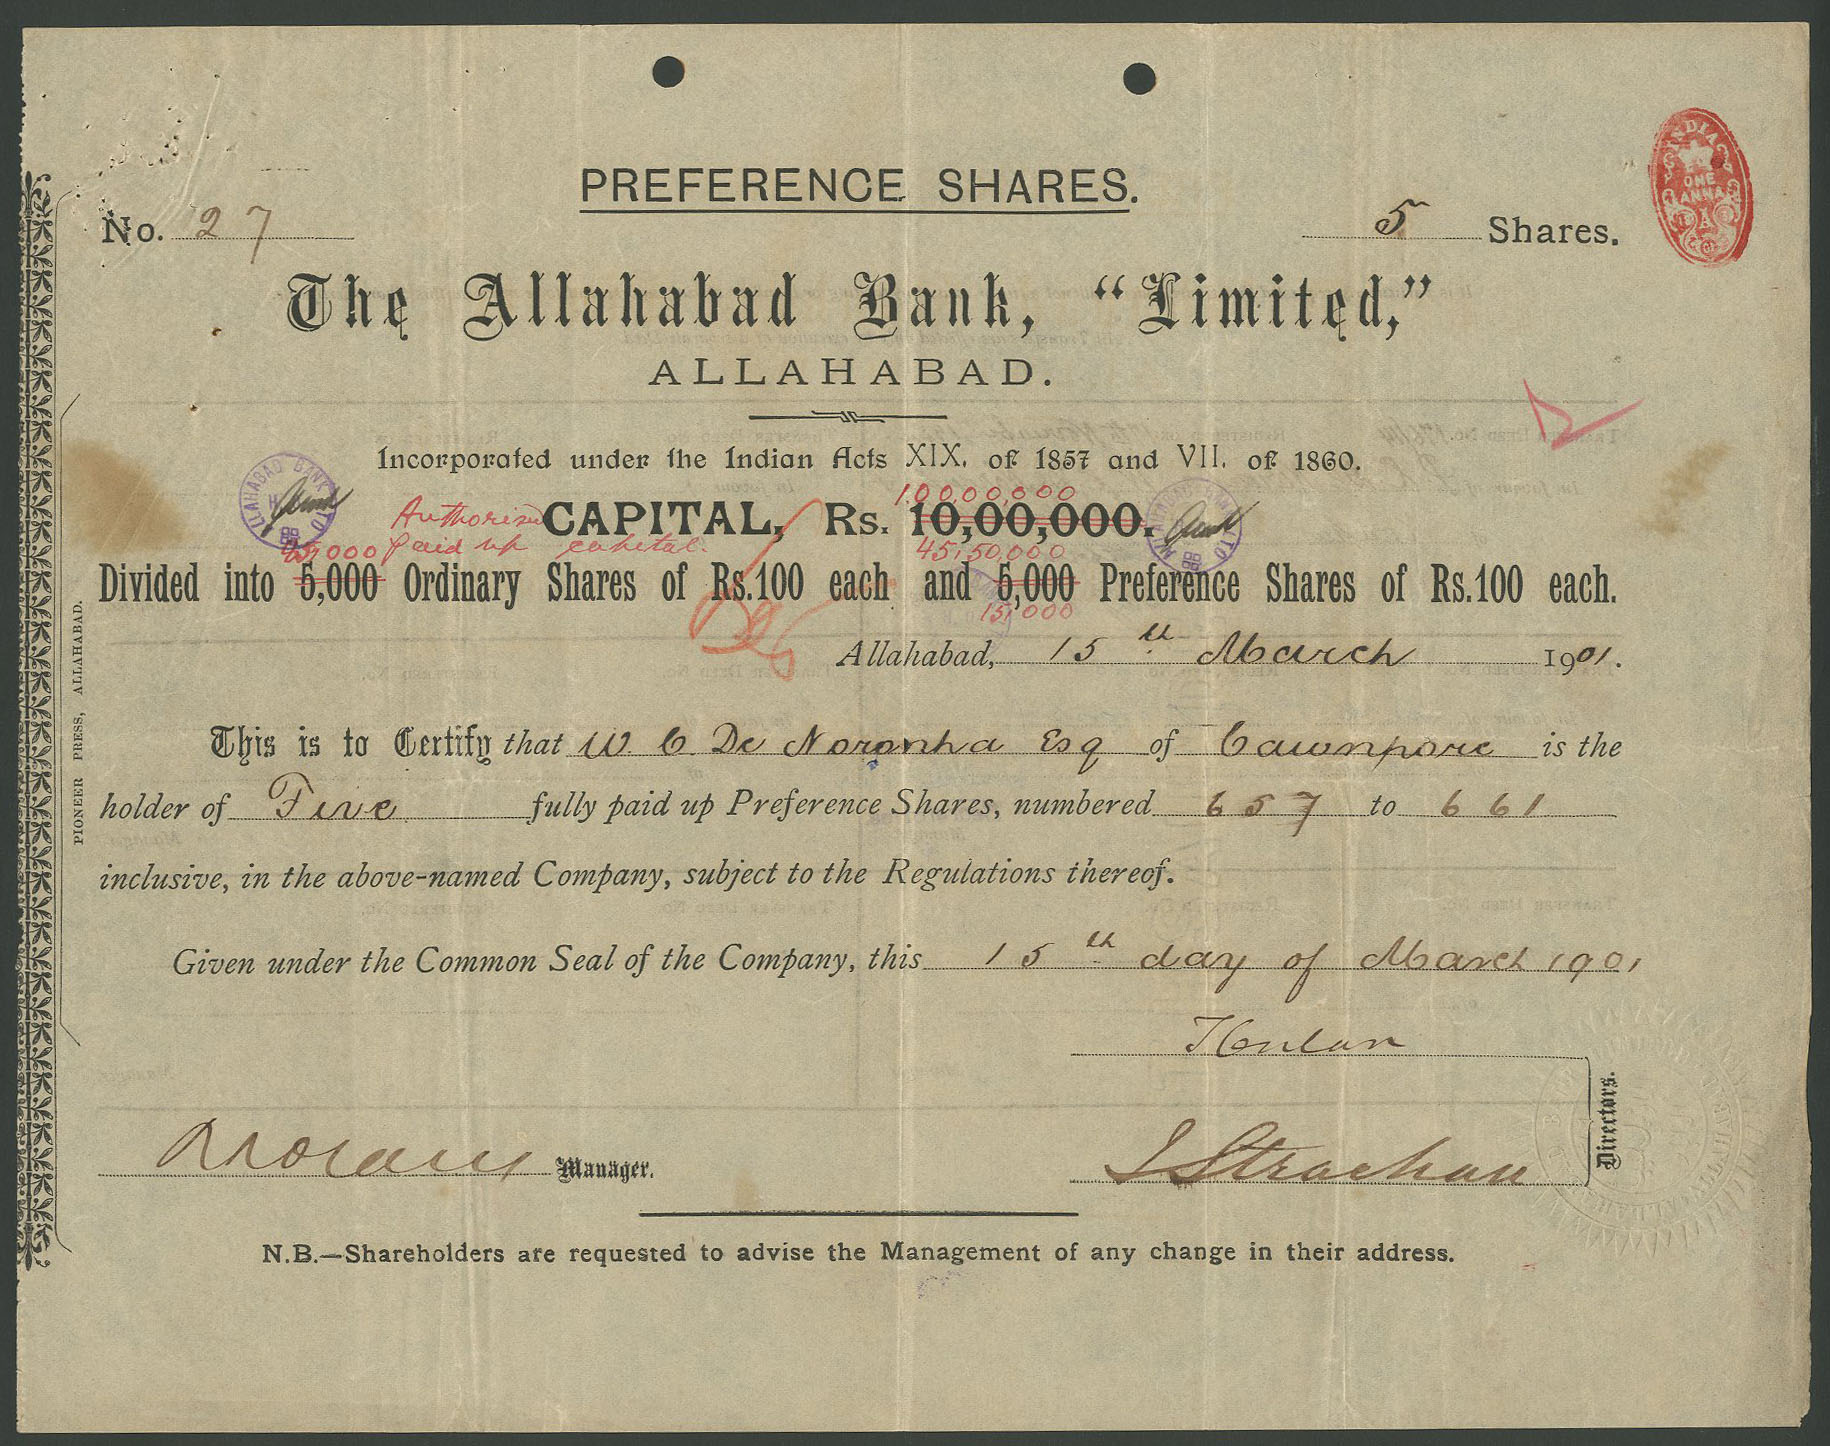 PREFERENCE SHARES.
No. 27
5 Shares.
INDIA
ONE
ANNA
The Allahabad Bank, "Limited,"
ALLAHABAD.
Incorporated under the Indian Acts XIX. of 1857 and VII. of 1860.
ALLAHABAD BANK
10000000
Authorised CAPITAL, Rs. 10,00,000.
paid up capital. 45,50,000
Divided into 5,000 Ordinary Shares of Rs.100 each and 5,000 Preference Shares of Rs.100 each.
15,000
Allahabad, 15th March 1901.
This is to Certify that W C De Noronha Esq of Cawnpore is the
holder of Five fully paid up Preference Shares, numbered 657 to 661
inclusive, in the above-named Company, subject to the Regulations thereof.
Given under the Common Seal of the Company, this 15th day of March 1901
Directors.
Manager.
J Strachan
N.B.—Shareholders are requested to advise the Management of any change in their address.
PIONEER PRESS, ALLAHABAD.